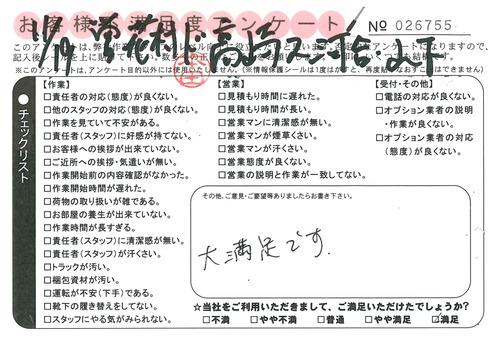 お客様満足度アンケート
№ 026755
11/9
このアンケートは、弊社作業
記入後シールを上に貼
※このアンケートは、アンケート目的以外には使用いたしません。(※情報保護シールは1度はがすと、再度貼りなおすことはできません)
チェックリスト
【作業】
□責任者の対応(態度)が良くない。
□他のスタッフの対応(態度)が良くない。
□作業を見ていて不安がある。
□責任者(スタッフ)に好感が持てない。
□お客様への挨拶が出来ていない。
□ご近所への挨拶・気遣いが無い。
□作業開始前の内容確認がなかった。
□作業開始時間が遅れた。
□荷物の取り扱いが雑である。
□お部屋の養生が出来ていない。
□作業時間が長すぎる。
□責任者(スタッフ)に清潔感が無い。
□責任者(スタッフ)が汗くさい。
□トラックが汚い。
□梱包資材が汚い。
□運転が不安(下手)である。
□靴下の履き替えをしてない。
□スタッフにやる気がみられない。
【営業】
□見積もり時間に遅れた。
□見積もり時間が長い。
□営業マンに清潔感が無い。
□営業マンが煙草くさい。
□営業マンが汗くさい。
□営業態度が良くない。
□営業の説明と作業が一致してない。
【受付・その他】
□電話の対応が良くない。
□オプション業者の説明
・作業が良くない。
□オプション業者の対応
(態度)が良くない。
その他、ご意見・ご要望等ありましたらお書き下さい。
大満足です.
☆当社をご利用いただきまして、ご満足いただけたでしょうか?
□不満 □やや不満 □普通 □やや満足 ☑満足